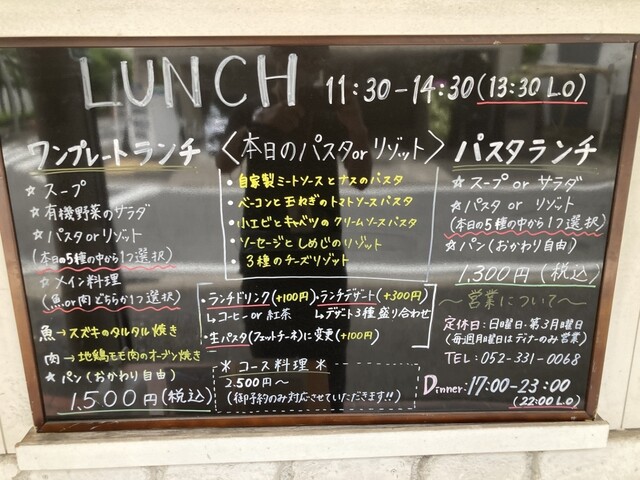 LUNCH 11:30-14:30(13:30 LO)
ワンプレートランチ
☆ スープ
☆ 有機野菜のサラダ
☆ パスタ or リゾット
(本日の5種の中から1つ選択)
☆ メイン料理
(魚 or 肉どちらか1つ選択)
魚→スズキのタルタル焼き
肉→地鶏モモ肉のオーブン焼き
☆ パン(おかわり自由)
1,500円(税込)
〈本日のパスタorリゾット〉
・自家製ミートソースとナスのパスタ
・ベーコンと玉ねぎのトマトソースパスタ
・小エビとキャベツのクリームソースパスタ
・ソーセージとしめじのリゾット
・3種のチーズリゾット
・ランチドリンク(+100円)・ランチデザート(+300円)
↳コーヒー or 紅茶 ↳デザート3種盛り合わせ
・生パスタ(フェットチーネ)に変更(+100円)
＊ コース料理 ＊
2,500円〜
(御予約のみ対応させていただきます!!)
パスタランチ
☆ スープ or サラダ
☆ パスタ or リゾット
(本日の5種の中から1つ選択)
☆ パン(おかわり自由)
1,300円(税込)
〜営業について〜
定休日:日曜日・第3月曜日
(毎週月曜日はディナーのみ営業)
TEL:052-331-0068
Dinner:17:00-23:00
(22:00 L.O)